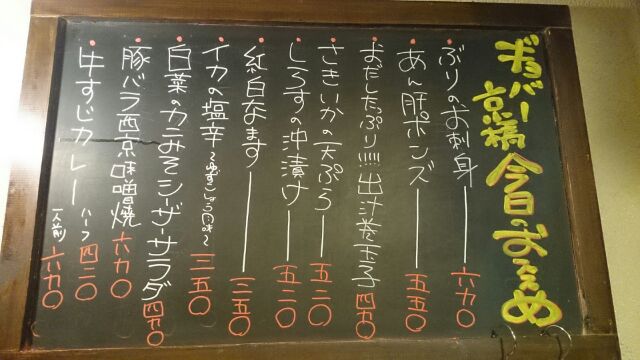 ギョバー京橋 今日のおススめ
ぶりのお刺身 六九〇
あん肝ポンズ 五五〇
おだしたっぷり!!!!!出汁巻玉子 四九〇
さきいかの天ぷら 五二〇
しらすの沖漬け 五二〇
紅白なます 三五〇
イカの塩辛〜ゆずこしょう風味〜 三五〇
白菜のカニみそシーザーサラダ 四九〇
豚バラ西京味噌焼 六九〇
牛すじカレー ハーフ 四二〇
一人前 六九〇